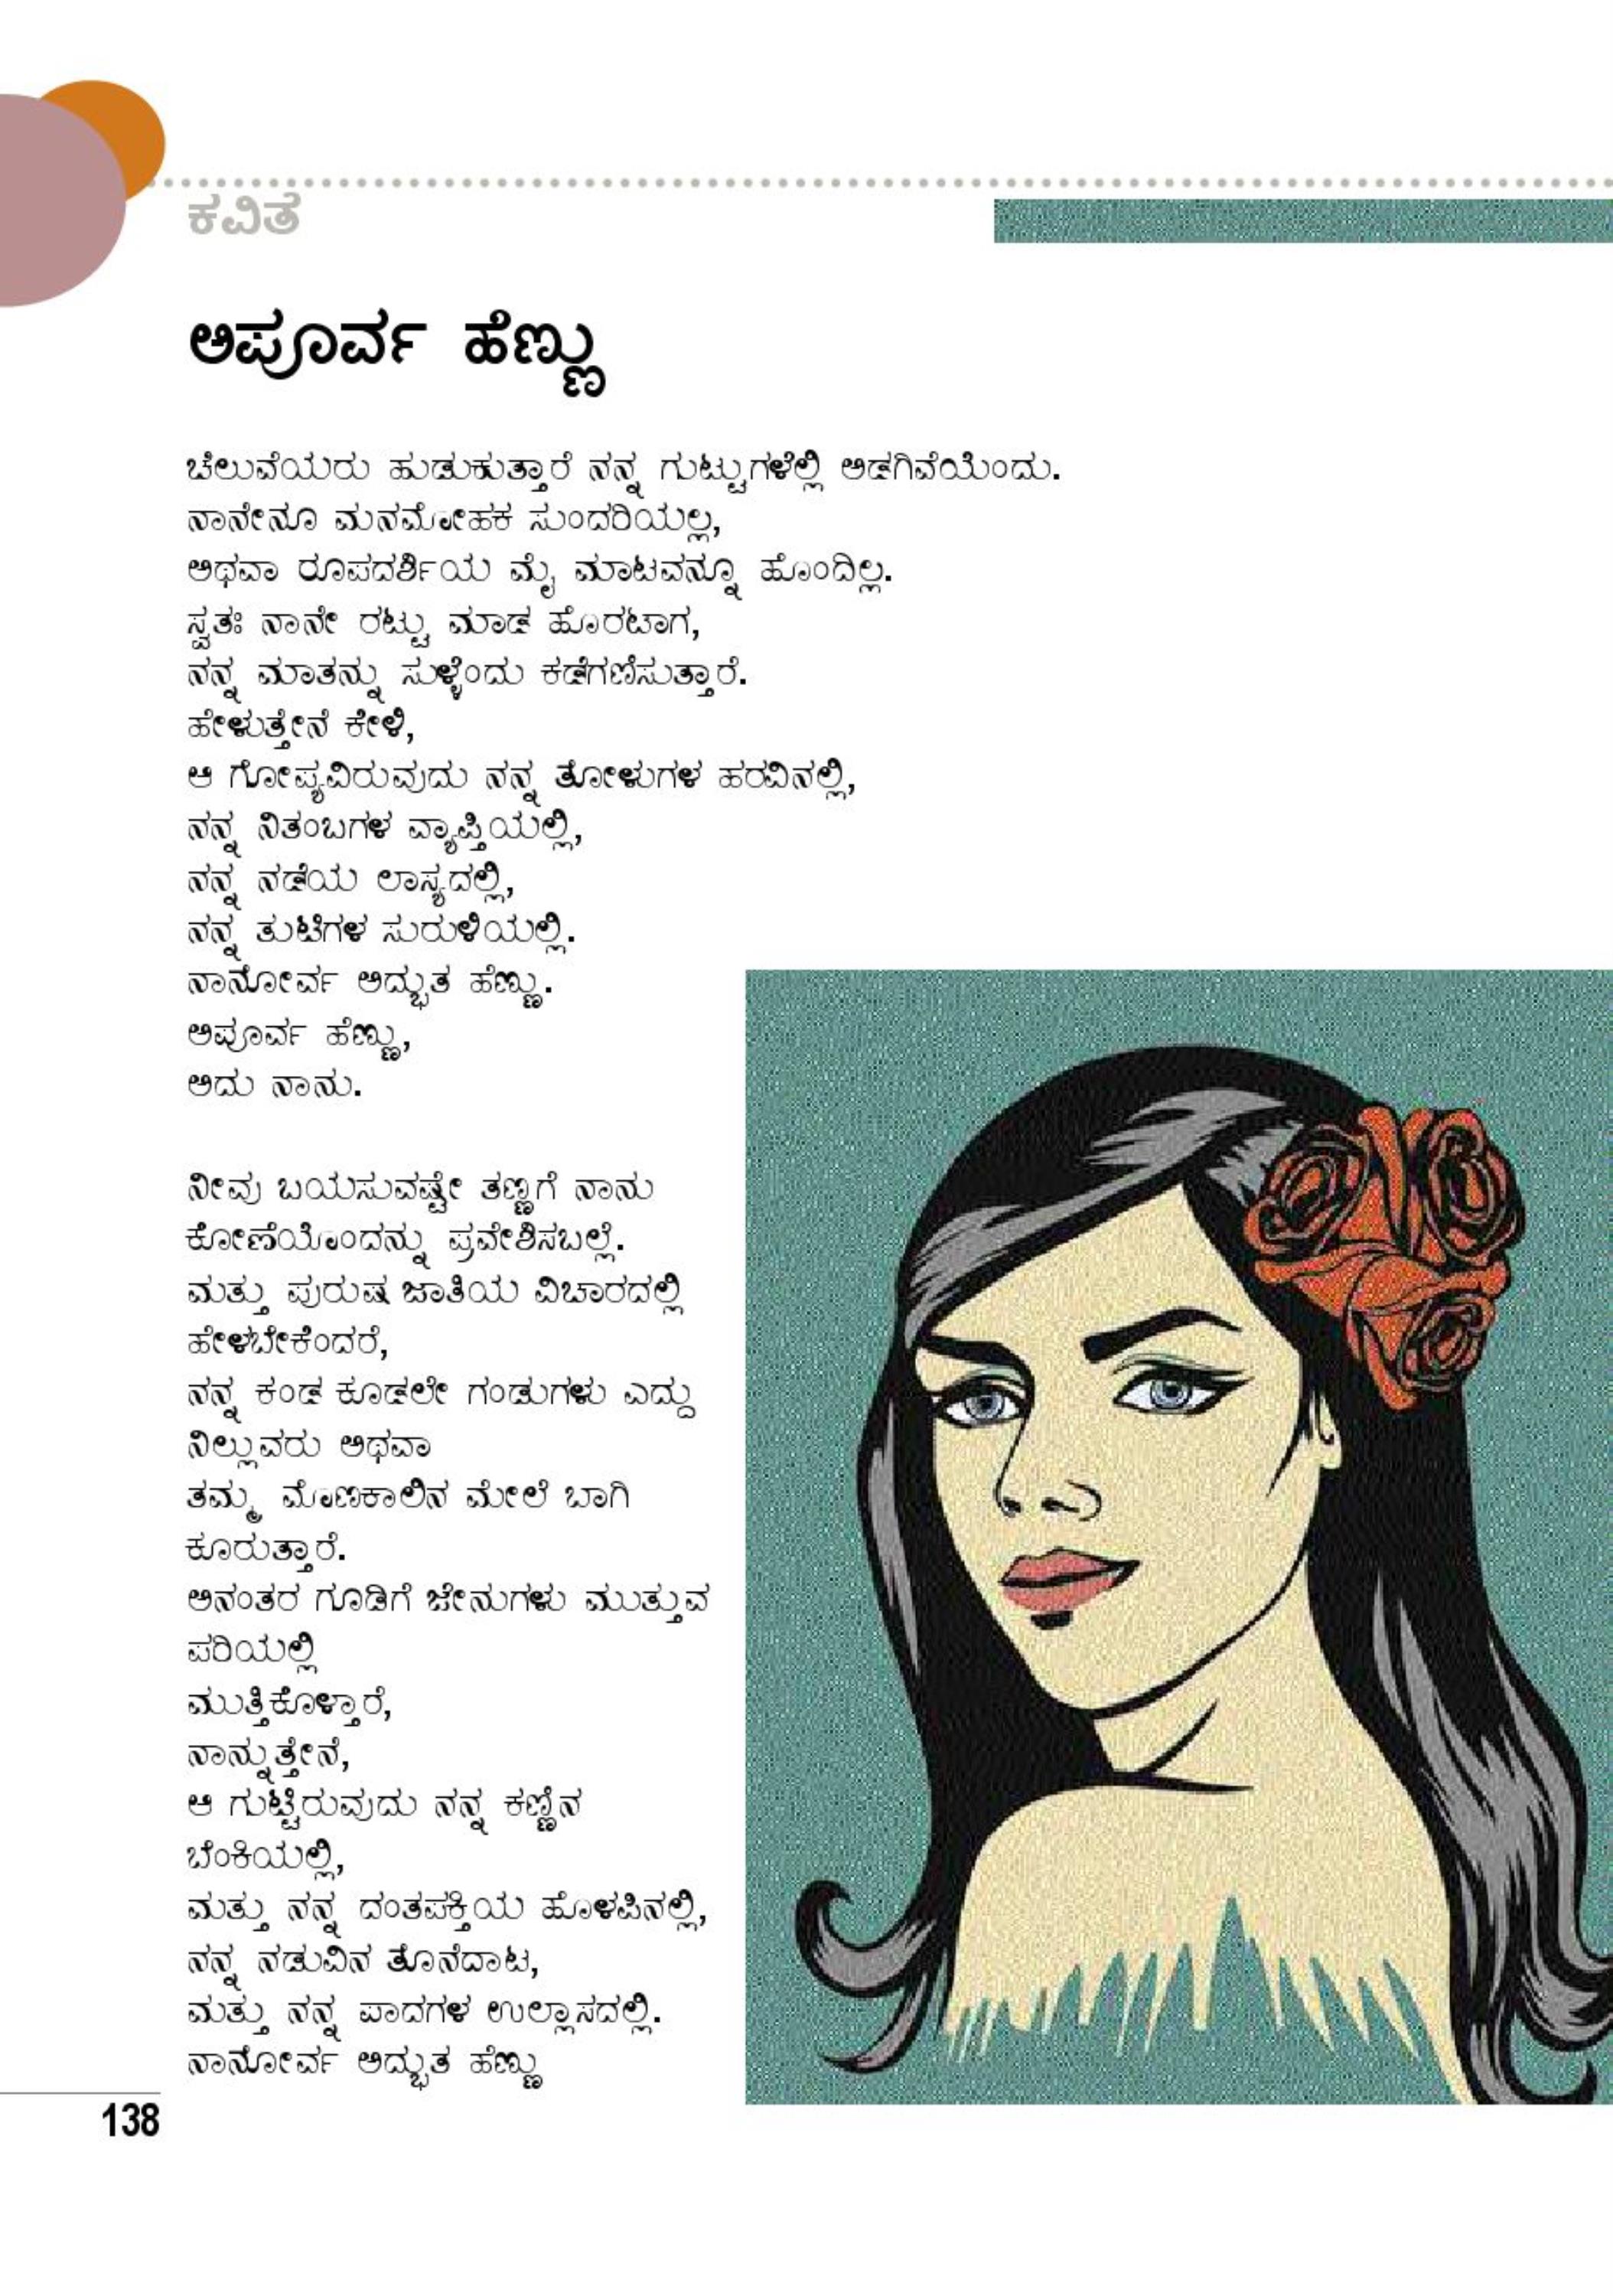 ಕವಿತೆ
ಅಪೂರ್ವ ಹೆಣ್ಣು
ಚೆಲುವೆಯರು ಹುಡುಕುತ್ತಾರೆ ನನ್ನ ಗುಟ್ಟುಗಳೆಲ್ಲಿ ಅಡಗಿವೆಯೆಂದು.
ನಾನೇನೂ ಮನಮೋಹಕ ಸುಂದರಿಯಲ್ಲ,
ಅಥವಾ ರೂಪದರ್ಶಿಯ ಮೈ ಮಾಟವನ್ನೂ ಹೊಂದಿಲ್ಲ.
ಸ್ವತಃ ನಾನೇ ರಟ್ಟು ಮಾಡ ಹೊರಟಾಗ,
ನನ್ನ ಮಾತನ್ನು ಸುಳ್ಳೆಂದು ಕಡೆಗಣಿಸುತ್ತಾರೆ.
ಹೇಳುತ್ತೇನೆ ಕೇಳಿ,
ಆ ಗೋಪ್ಯವಿರುವುದು ನನ್ನ ತೋಳುಗಳ ಹರವಿನಲ್ಲಿ,
ನನ್ನ ನಿತಂಬಗಳ ವ್ಯಾಪ್ತಿಯಲ್ಲಿ,
ನನ್ನ ನಡೆಯ ಲಾಸ್ಯದಲ್ಲಿ,
ನನ್ನ ತುಟಿಗಳ ಸುರುಳಿಯಲ್ಲಿ.
ನಾನೋರ್ವ ಅದ್ಭುತ ಹೆಣ್ಣು.
ಅಪೂರ್ವ ಹೆಣ್ಣು,
ಅದು ನಾನು.
ನೀವು ಬಯಸುವಷ್ಟೇ ತಣ್ಣಗೆ ನಾನು
ಕೋಣೆಯೊಂದನ್ನು ಪ್ರವೇಶಿಸಬಲ್ಲೆ.
ಮತ್ತು ಪುರುಷ ಜಾತಿಯ ವಿಚಾರದಲ್ಲಿ
ಹೇಳಬೇಕೆಂದರೆ,
ನನ್ನ ಕಂಡ ಕೂಡಲೇ ಗಂಡುಗಳು ಎದ್ದು
ನಿಲ್ಲುವರು ಅಥವಾ
ತಮ್ಮ ಮೊಣಕಾಲಿನ ಮೇಲೆ ಬಾಗಿ
ಕೂರುತ್ತಾರೆ.
ಅನಂತರ ಗೂಡಿಗೆ ಜೇನುಗಳು ಮುತ್ತುವ
ಪರಿಯಲ್ಲಿ
ಮುತ್ತಿಕೊಳ್ತಾರೆ,
ನಾನ್ನುತ್ತೇನೆ,
ಆ ಗುಟ್ಟಿರುವುದು ನನ್ನ ಕಣ್ಣಿನ
ಬೆಂಕಿಯಲ್ಲಿ,
ಮತ್ತು ನನ್ನ ದಂತಪಕ್ತಿಯ ಹೊಳಪಿನಲ್ಲಿ,
ನನ್ನ ನಡುವಿನ ತೊನೆದಾಟ,
ಮತ್ತು ನನ್ನ ಪಾದಗಳ ಉಲ್ಲಾಸದಲ್ಲಿ.
ನಾನೋರ್ವ ಅದ್ಭುತ ಹೆಣ್ಣು
138